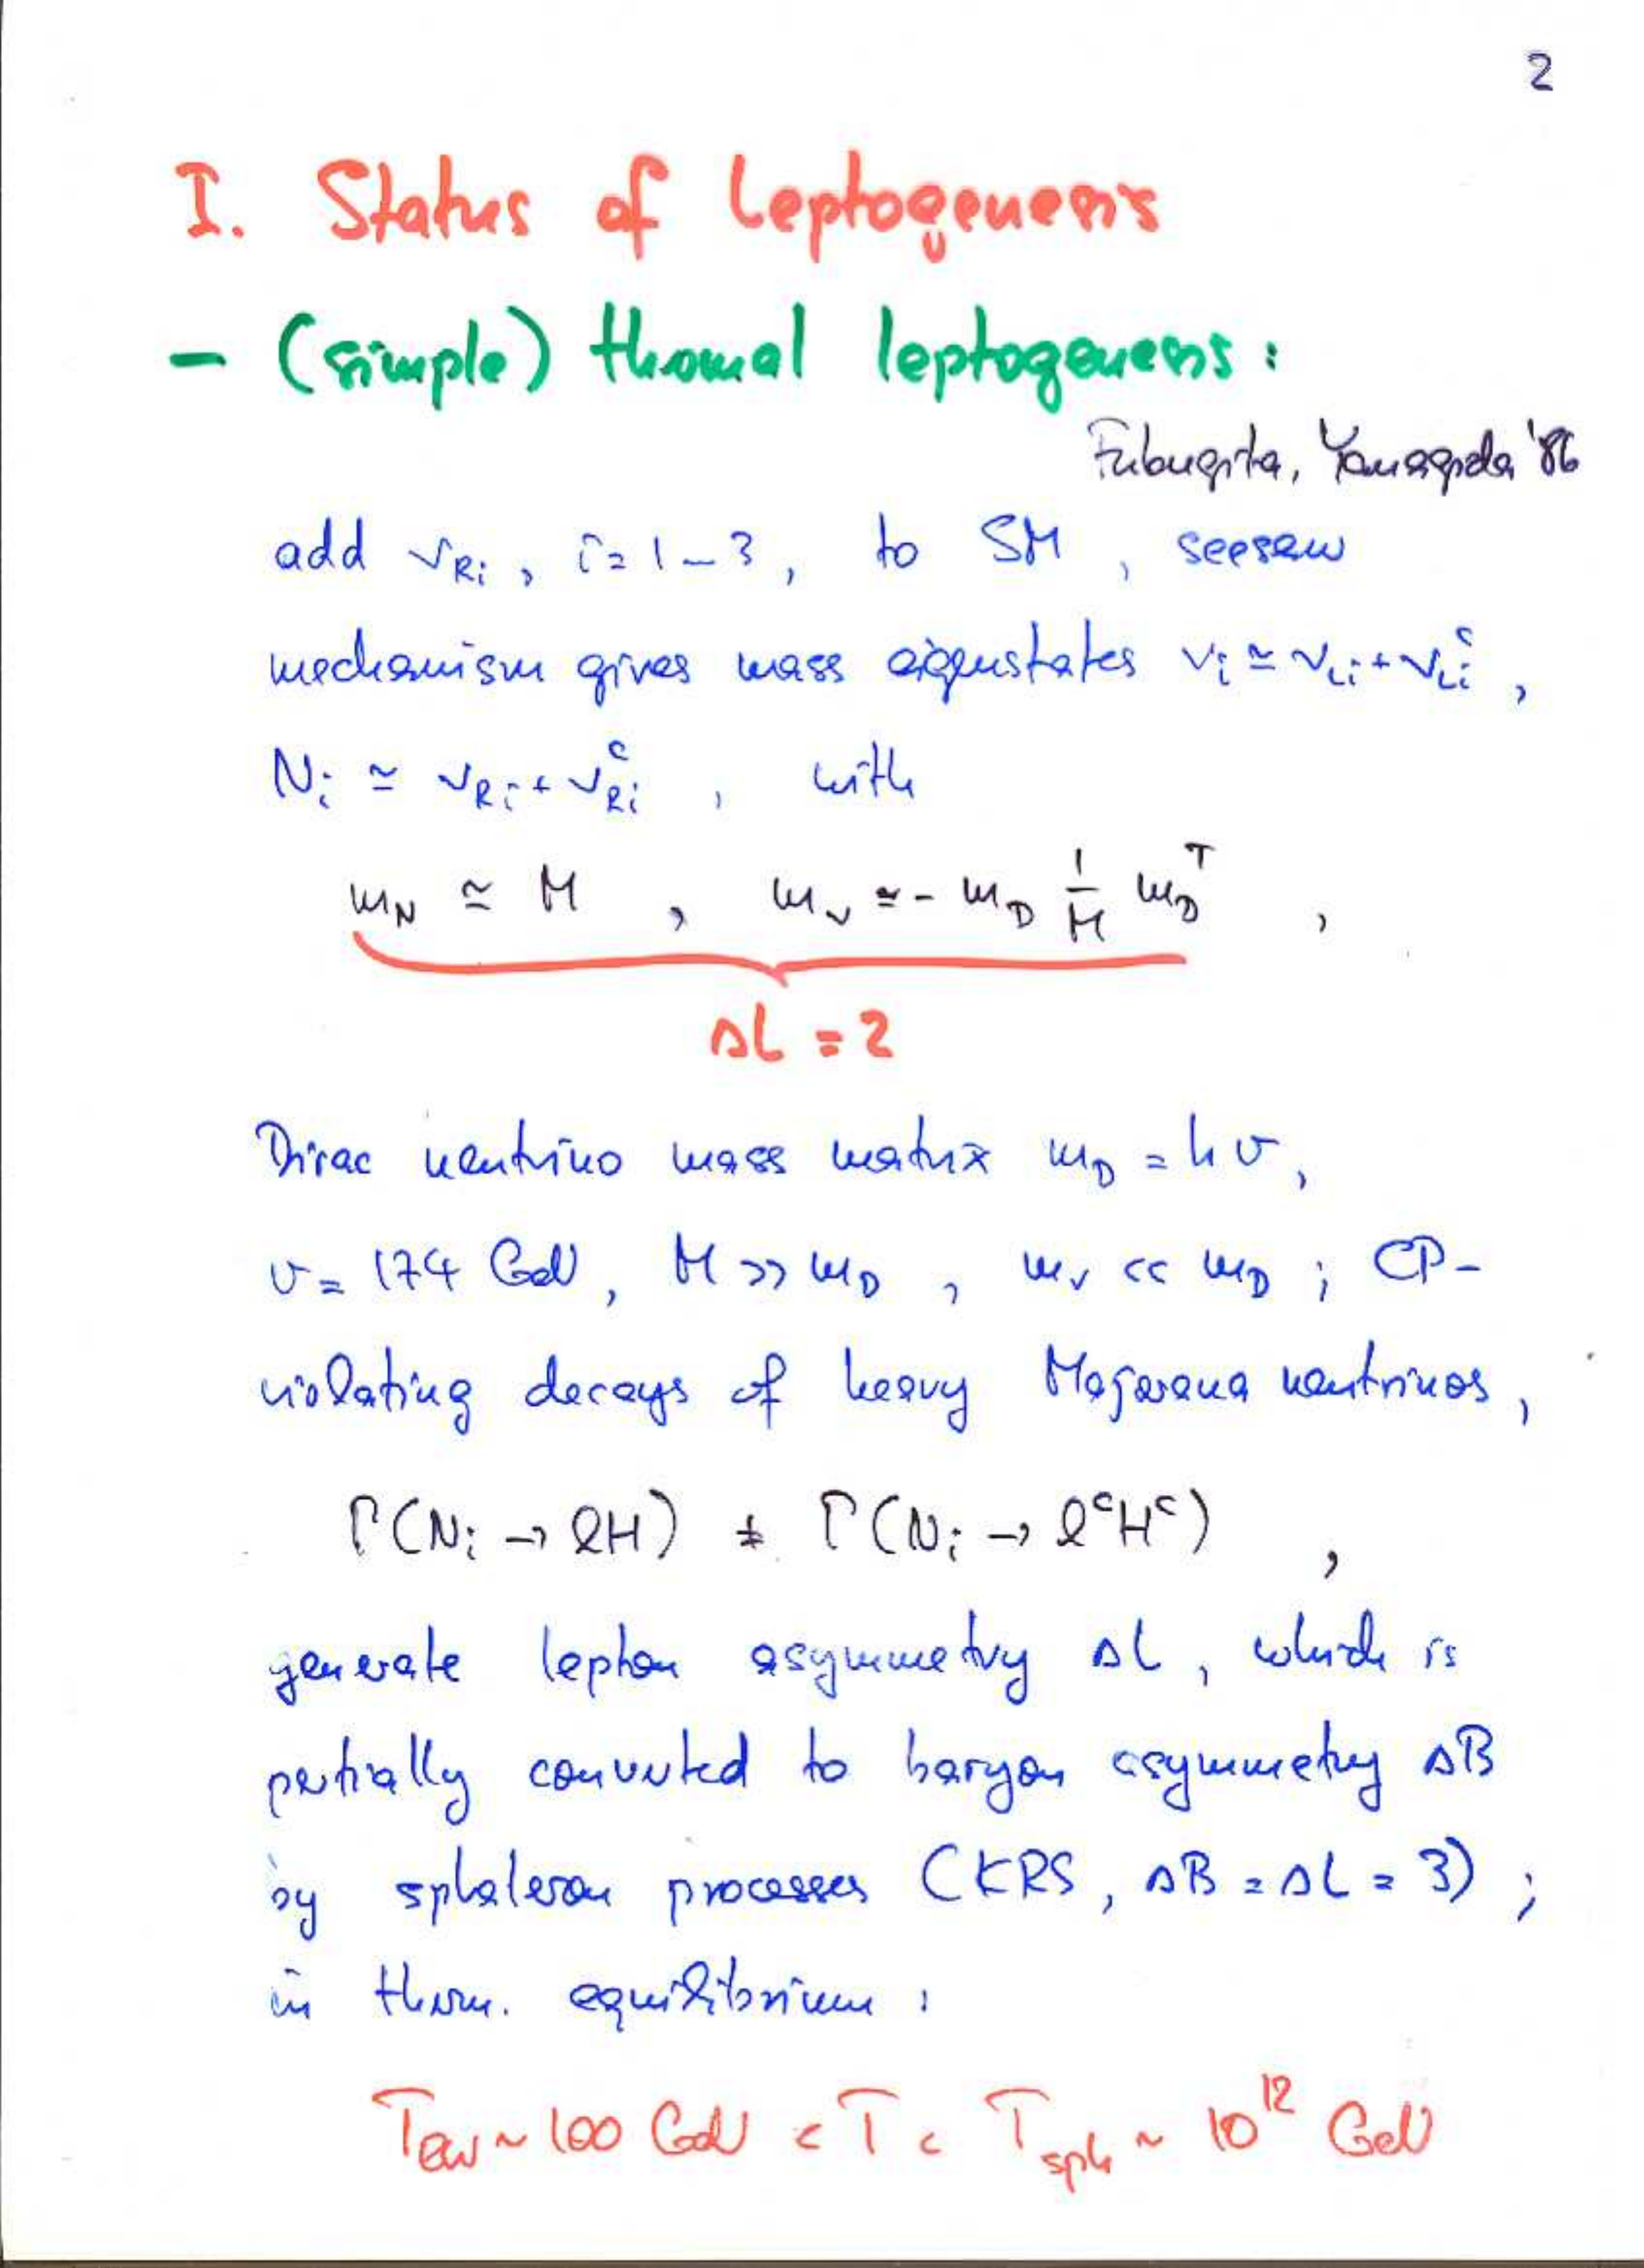 2
I. Status of Leptogenesis
- (simple) thermal leptogenesis:
Fukugita, Yanagida '86
add ν_Ri, i=1-3, to SM, seesaw
mechanism gives mass eigenstates ν_i ≃ ν_Li + ν_Li^c,
N_i ≃ ν_Ri + ν_Ri^c, with
m_N ≃ M, m_ν ≃ - m_D 1/M m_D^T,
ΔL = 2
Dirac neutrino mass matrix m_D = h v,
v = 174 GeV, M >> m_D, m_ν << m_D; CP-
violating decays of heavy Majorana neutrinos,
Γ(N_i → ℓH) ≠ Γ(N_i → ℓ^c H^c),
generate lepton asymmetry ΔL, which is
partially converted to baryon asymmetry ΔB
by sphaleron processes (KRS, ΔB = ΔL = 3);
in therm. equilibrium:
T_EW ~ 100 GeV < T < T_sph ~ 10^12 GeV